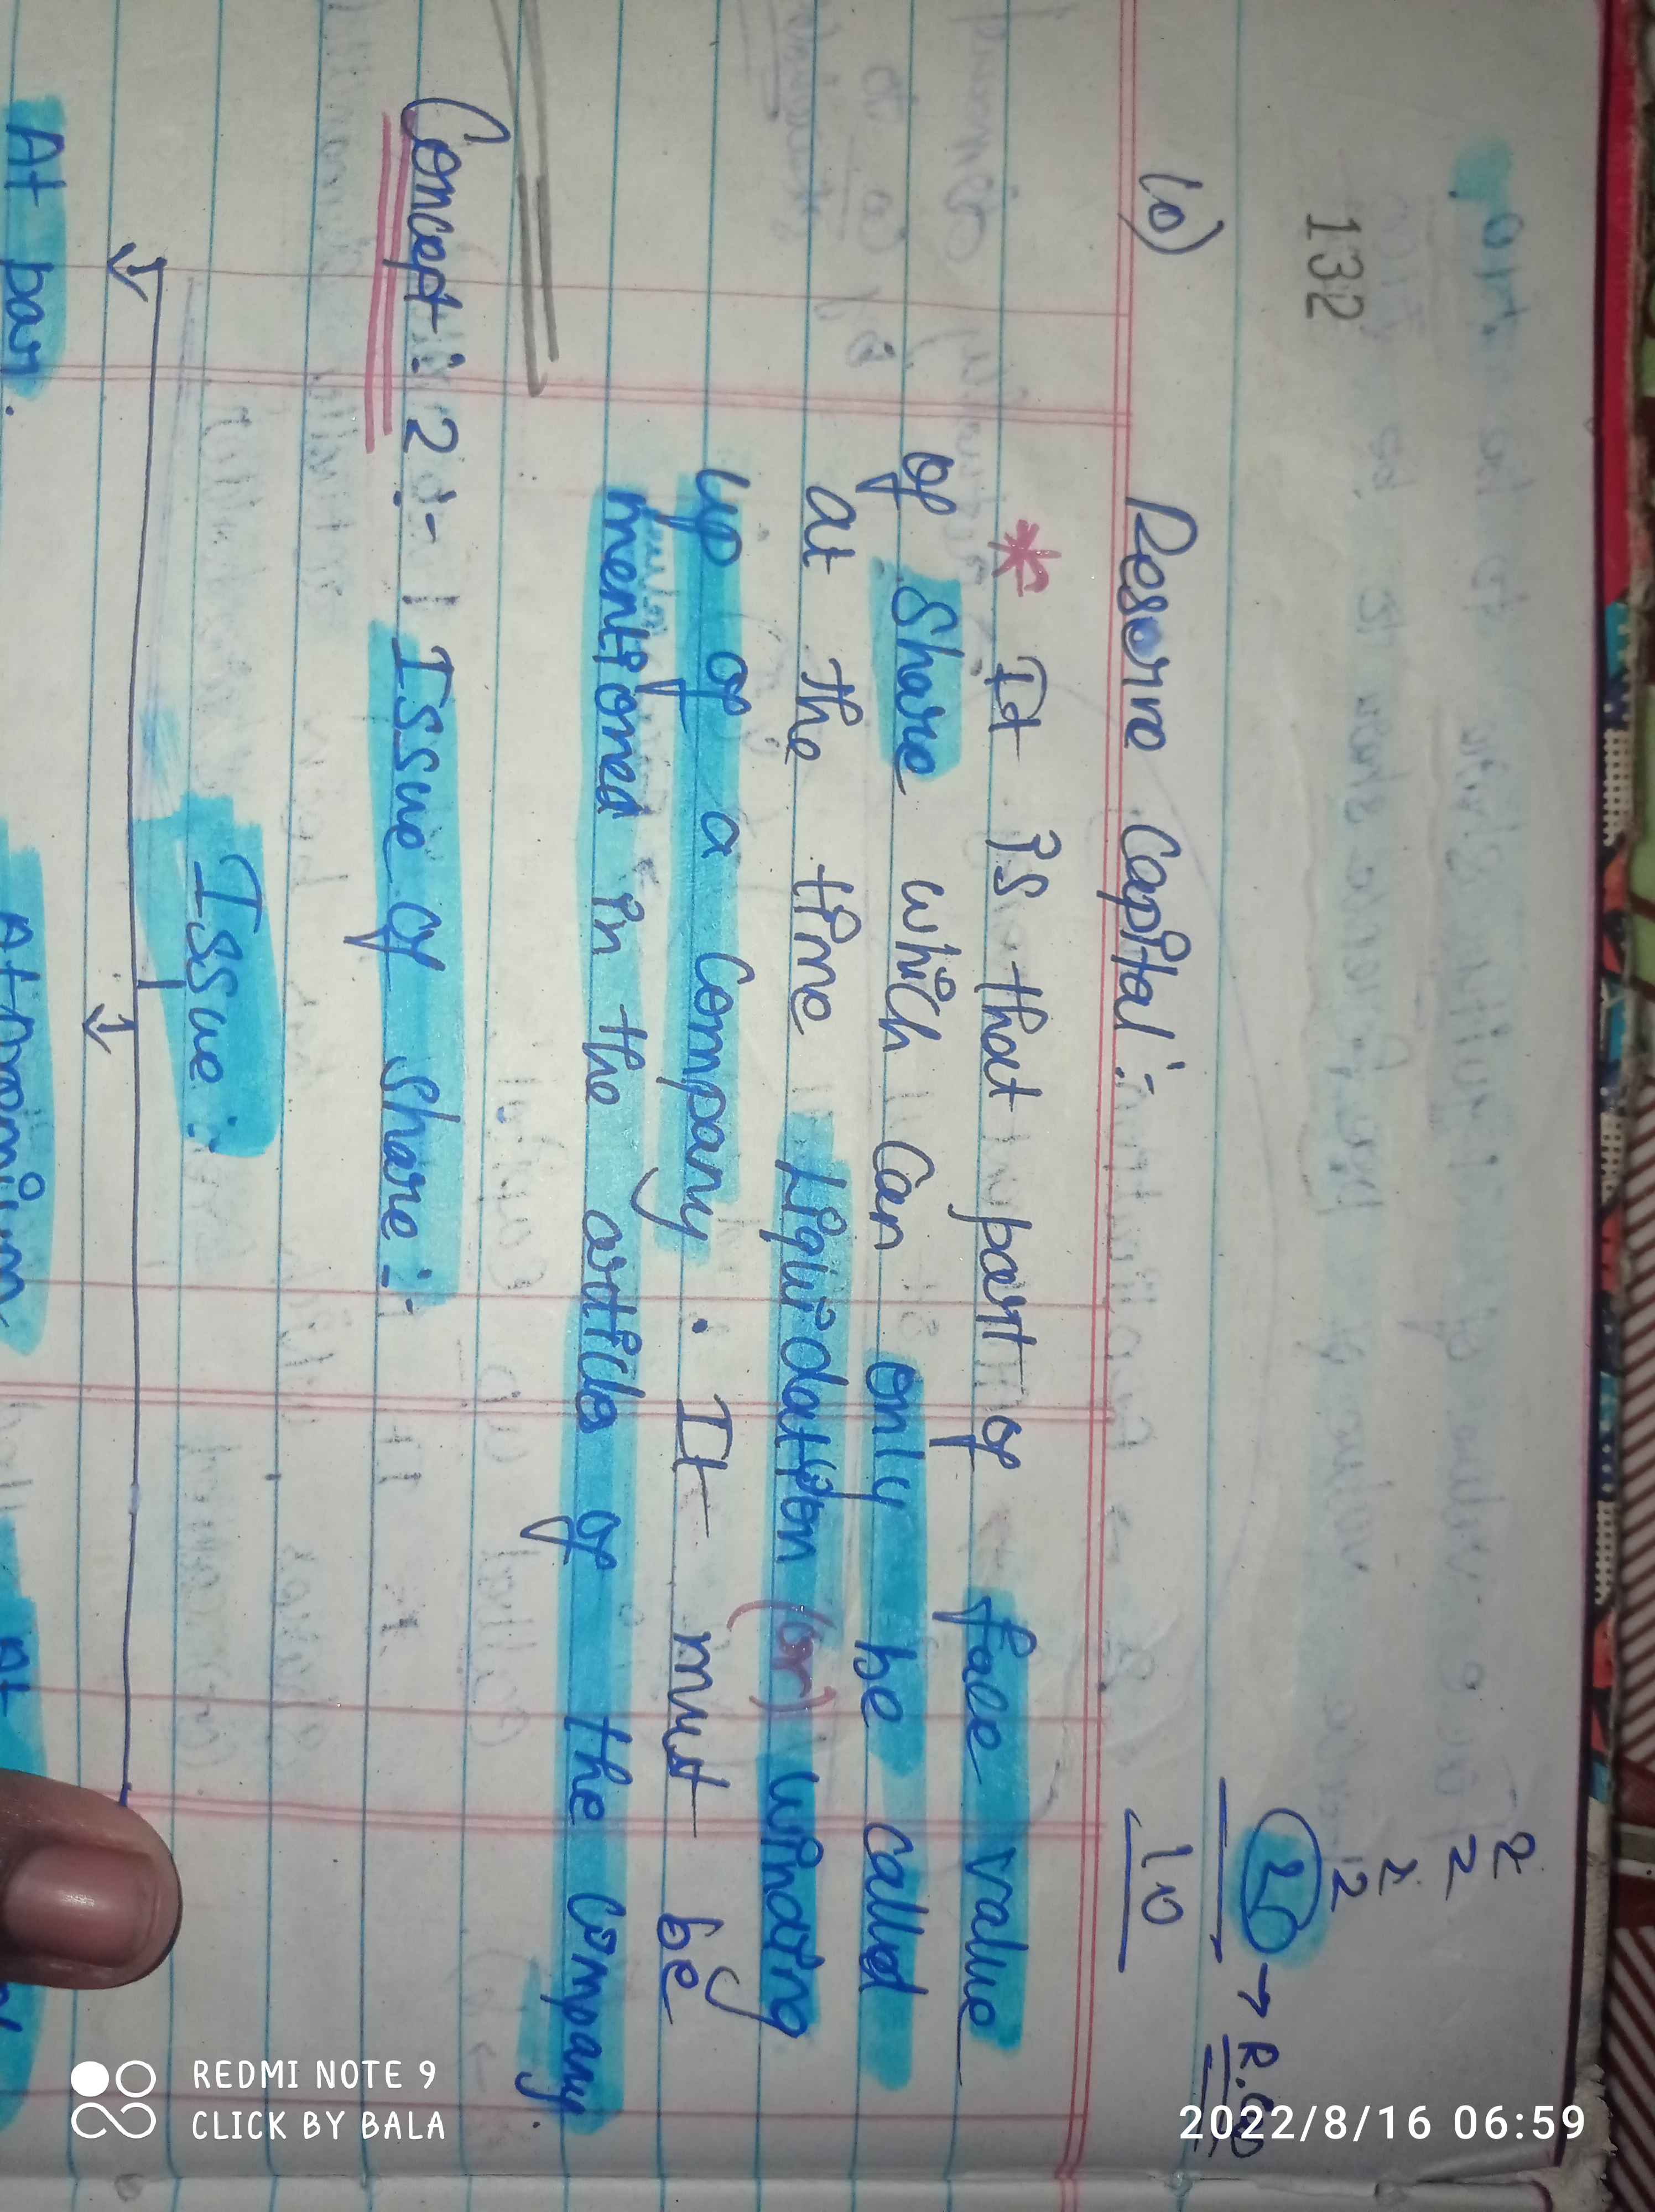 132
2
2
2
2
2 → R. Cap
10) Reserve Capital :-
10
* It is that part of face value
of share which can only be called
at the time Liquidation (or) winding
up of a company. It must be
mentioned in the articles of the company.
Concept : 2 :- Issue of share :-
Issue :
At par. At premium At
REDMI NOTE 9
CLICK BY BALA
2022/8/16 06:59